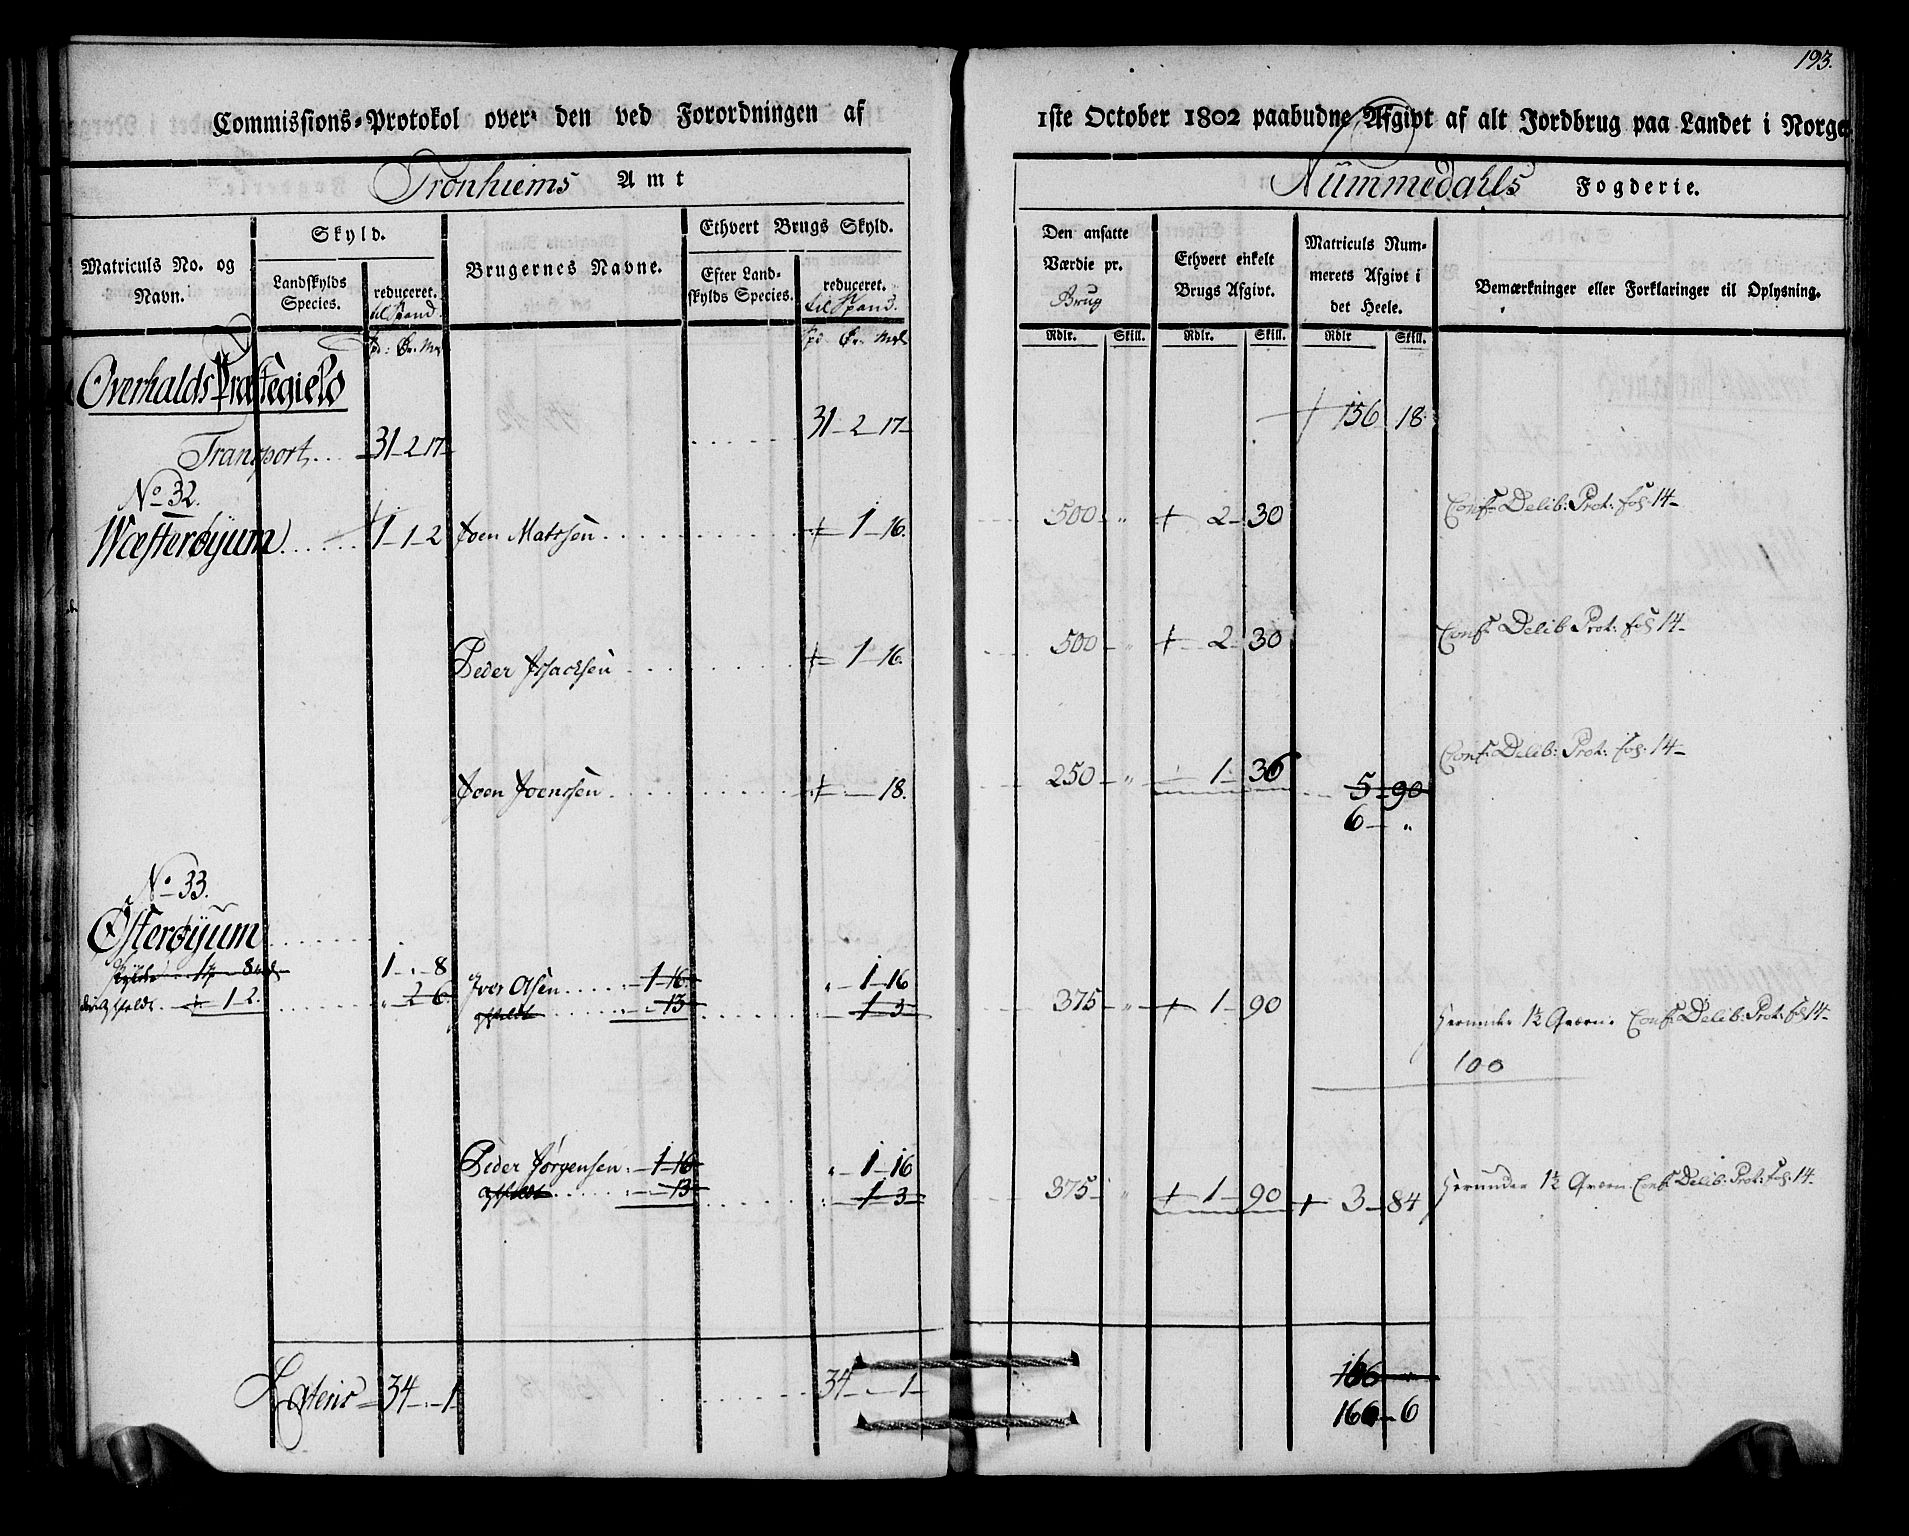 193.
Commissions-Protokol over den ved Forordningen af 1ste October 1802 paabudne Afgivt af alt Jordbrug paa Landet i Norge
Tronhiems Amt
Nummedahls Fogderie.
Matriculs No. og Navn.
Skyld.
Landskylds Species.
reduceret. til Spand
Brugernes Navne.
Ethvert Brugs Skyld.
Efter Landskylds Species.
reduceret. til Spand.
Den ansatte Værdie pr. Brug
Ethvert enkelt Brugs Afgivt.
Matriculs Nummerets Afgivt i det Heele.
Bemærkninger eller Forklaringer til Oplysning.
Rdlr. Skill. Rdlr. Skill. Rdlr Skill.
Overhalds Præstegield
Transport. 31-2-17 31-2-17 156 18.
No 32.
Wæsterøyum 1-1-2 Joen Matssen 1-16. 500 " 2-30 Conf. Delib: Prot: fol: 14-
Peder Isacksen 1-16. 500 " 2-30 Conf. Delib Prot: fol 14-
Joen Joenssen 18. 250 " 1-36 5-90 Conf. Delib: Prot: fol: 14-
6-"
No 33.
Østerøyum
1-"-8 Iver Olsen 1-16 "-1-16
1-2. "-2-6 13 1-3 375 " 1-90 Herunder 1 Qværn. Conf. Delib: Prot: fol 14-
100
Peder Jørgensen 1-16 "-1-16
13 1-3 375 " 1-90 3-84 Herunder 1 Qværn. Conf. Delib: Prot: fol: 14-
Lateris 34-"-1 34-"-1 166 "
166-6